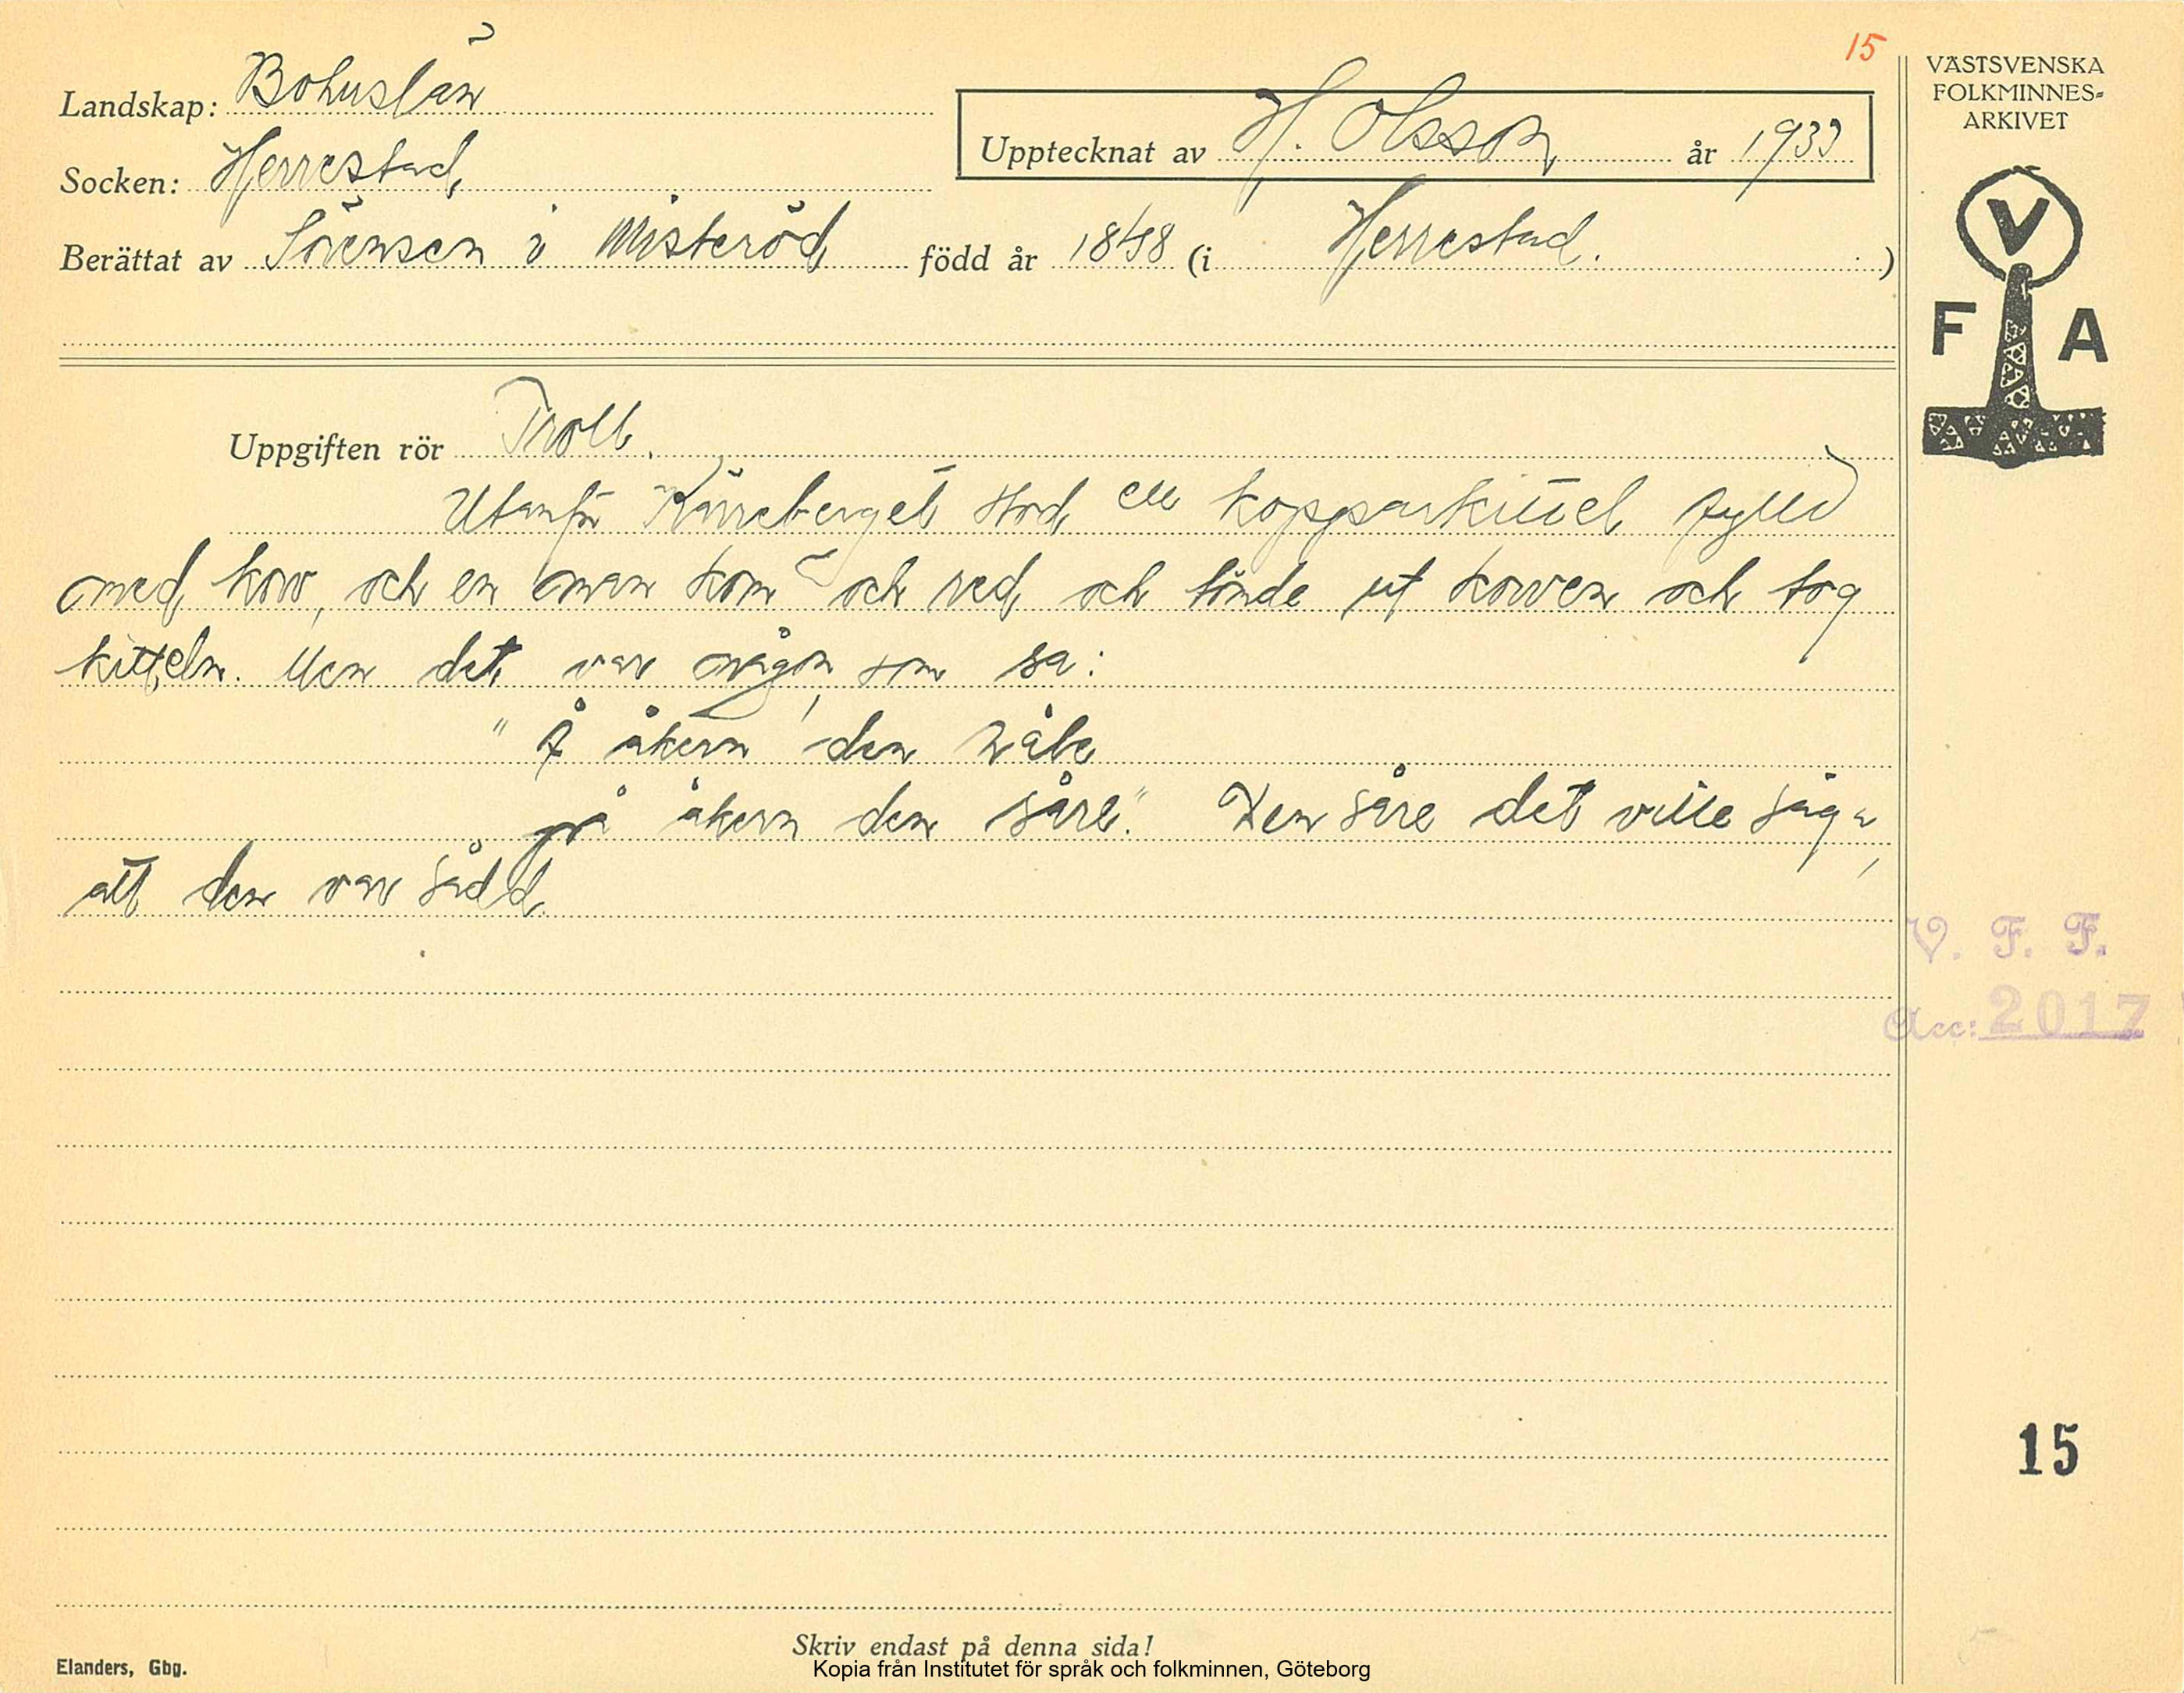 15
Landskap: Bohuslän
Socken: Herrestad
Upptecknat av H. Olsson år 1933
Berättat av Sörensen i Misteröd född år 1848 (i Herrestad.)
VÄSTSVENSKA
FOLKMINNES=
ARKIVET
V
F A
Uppgiften rör Troll.
Utanför Kärreberget stod en kopparkittel fylld
med korv, och en man kom och red och tömde ut korven och tog
kitteln. Men det var någon som sa:
" Å åkern den
på åkern den såre." Den såre det ville säga,
att den var sådd.
V. F. F.
Acc: 2017
15
Skriv endast på denna sida!
Elanders, Gbg.
Kopia från Institutet för språk och folkminnen, Göteborg